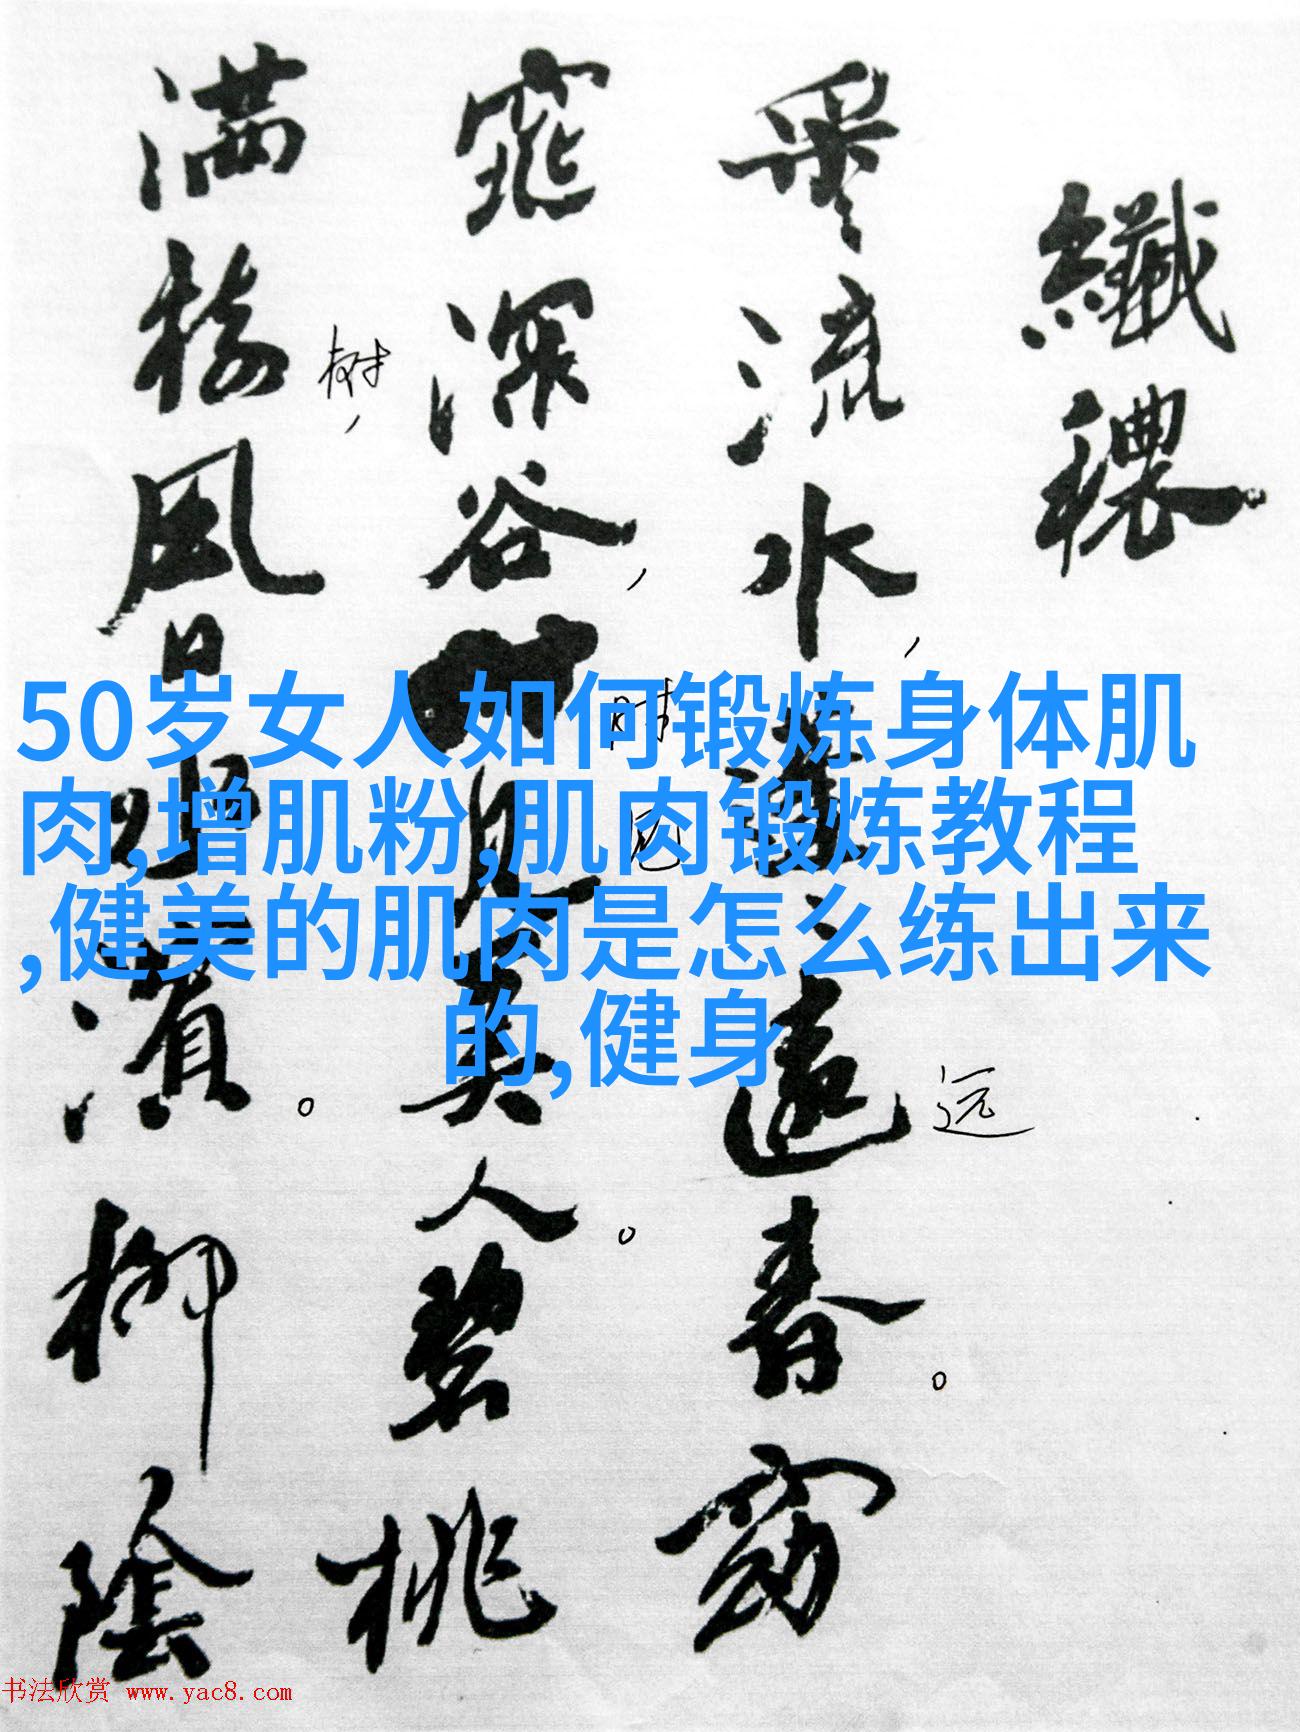 50岁女人如何锻炼身体肌
肉,增肌粉,肌肉锻炼教程
,健美的肌肉是怎么练出来
的,健身
纖穠
采〻流水,蓬〻遠春。窈
远
窕深谷,見美人。碧桃
时
见
满樹風日濱。柳陰
树,
书法欣赏 www.yac8.com